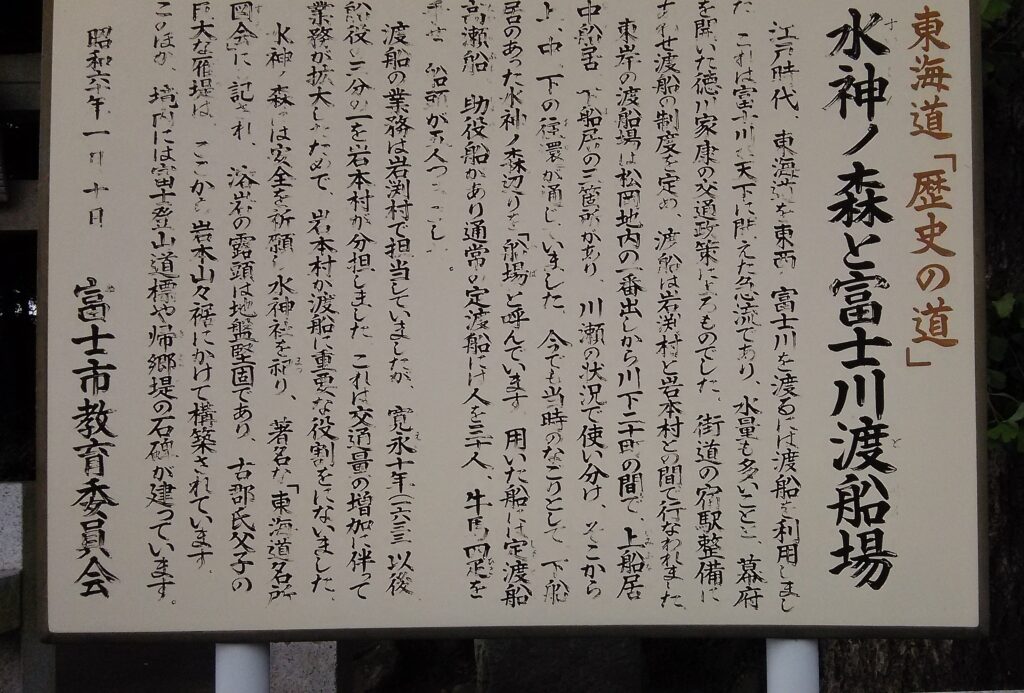 東海道「歴史の道」
水神ノ森と富士川渡船場
江戸時代、東海道を東西、富士川を渡るには渡船を利用しまし
た。これは富士川が天下に聞えた急流であり、水量も多いことと、幕府
を開いた徳川家康の交通政策によるものでした。街道の宿駅整備に
あわせ渡船の制度を定め、渡船は岩渕村と岩本村との間で行なわれました
東岸の渡船場は松岡地内の一番出しから川下二十町の間で、上船居
中船居 下船居の三箇所があり、川瀬の状況で使い分け、そこから
上、中、下の往還が通じていました。今でも当時のなごりとして、下船
居のあった水神ノ森辺りを「船場」と呼んでいます。用いた船は定渡船
高瀬船 助役船があり通常の定渡船には人を三十人、牛馬四疋を
船 が五人つ し 。
渡船の業務は岩渕村で担当していましたが、寛永十年(一六三三)以後
船役の三分の一を岩本村が分担しました これは交通量の増加に伴って
業務が拡大したためで、岩本村が渡船に重要な役割をにないました。
水神ノ森には安全を祈願し水神社を祀り、著名な「東海道名所
図会」に記され、溶岩の露頭は地盤堅固であり、古郡氏父子の
巨大な雁堤は、ここから岩本山々裾にかけて構築されています。
このほか、境内には富士登山道標や帰郷堤の石碑が建っています。
昭和六 年一月十日
富士市教育委員会